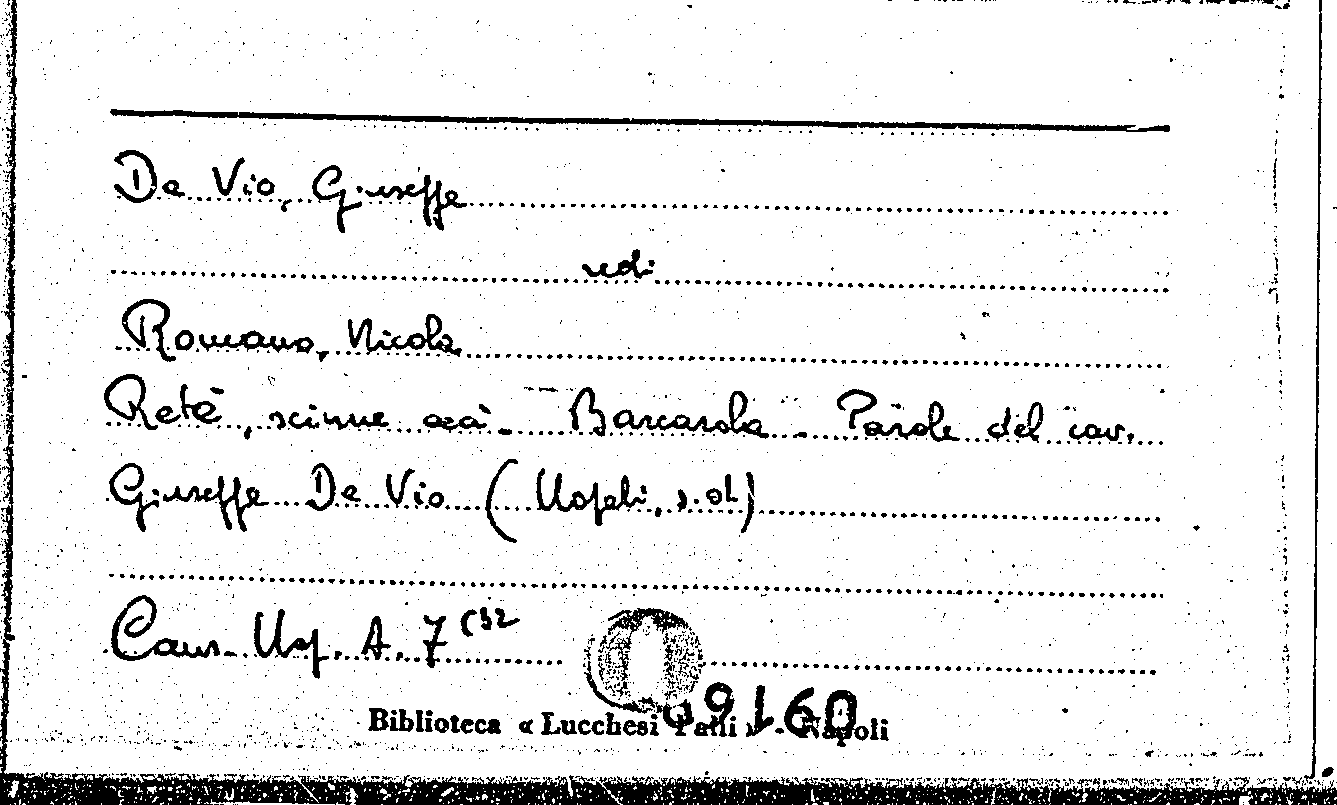 De Vio, Giuseppe
vedi
Romano, Nicola
Retè, scinne ccà. Barcarola. Parole del cav.
Giuseppe De Vio (Napoli, s.d.)
Canz. Nap. A. 7 (32
Biblioteca « Lucchesi Palli » - Napoli
09160